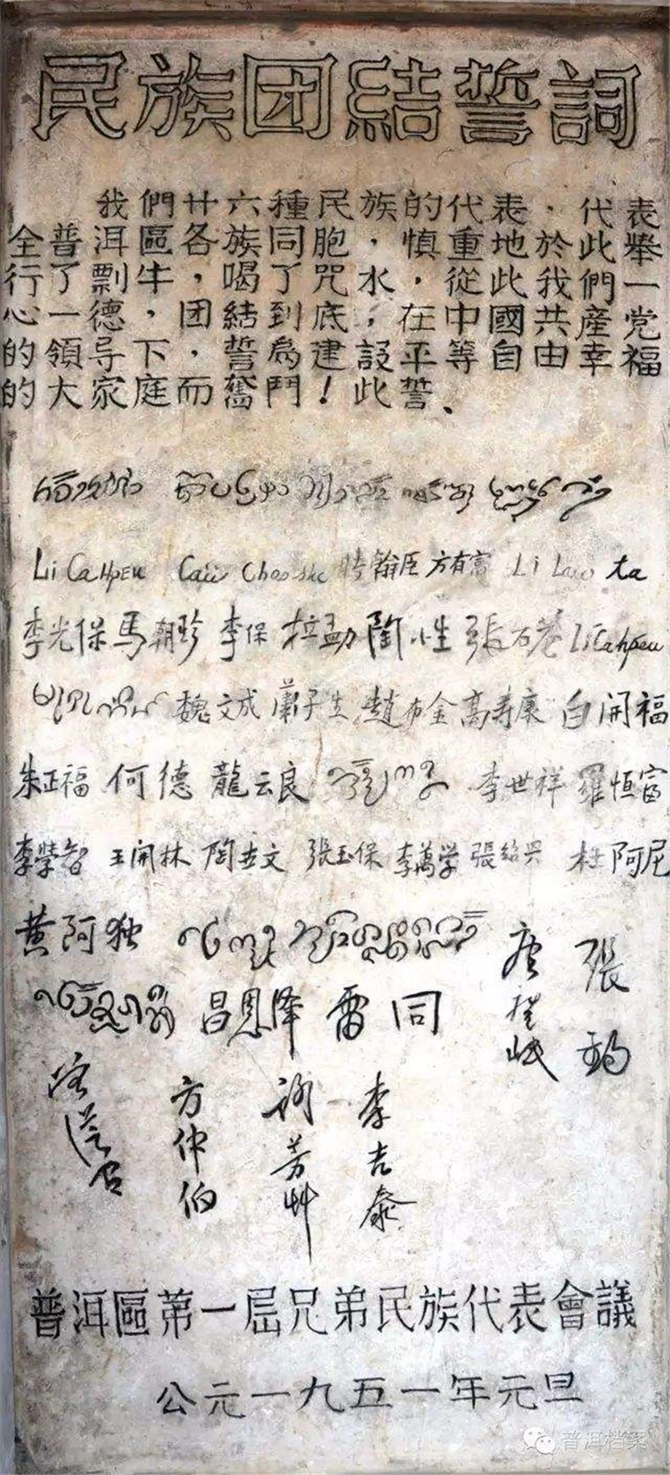 民族团結誓詞
我們廿六種民族的代表，代表
全普洱區各族同胞，慎重地於此舉
行了剽牛，喝了咒水，從此我們一
心一德，团結到底，在中國共產党
的領导下，誓為建設平等自由幸福
的大家庭而奮鬥！此誓、
Li Cahpeu 方有富 Li Lao ta
李光保 馬朝珍 李保 拉勐 陶小生 張石菴 Li Cahpeu
魏文成 蕭子生 趙布金 高寿康 白開福
朱正福 何德 龍云良 李世祥 羅恒富
李學智 王開林 陶世文 張玉保 李萬学 張紹兴 杜阿尼
黄阿独
張鈞
唐登岷
昌恩泽 雷同
方仲伯
李吉泰
普洱區第一屆兄弟民族代表會議
公元一九五一年元旦
普洱档案